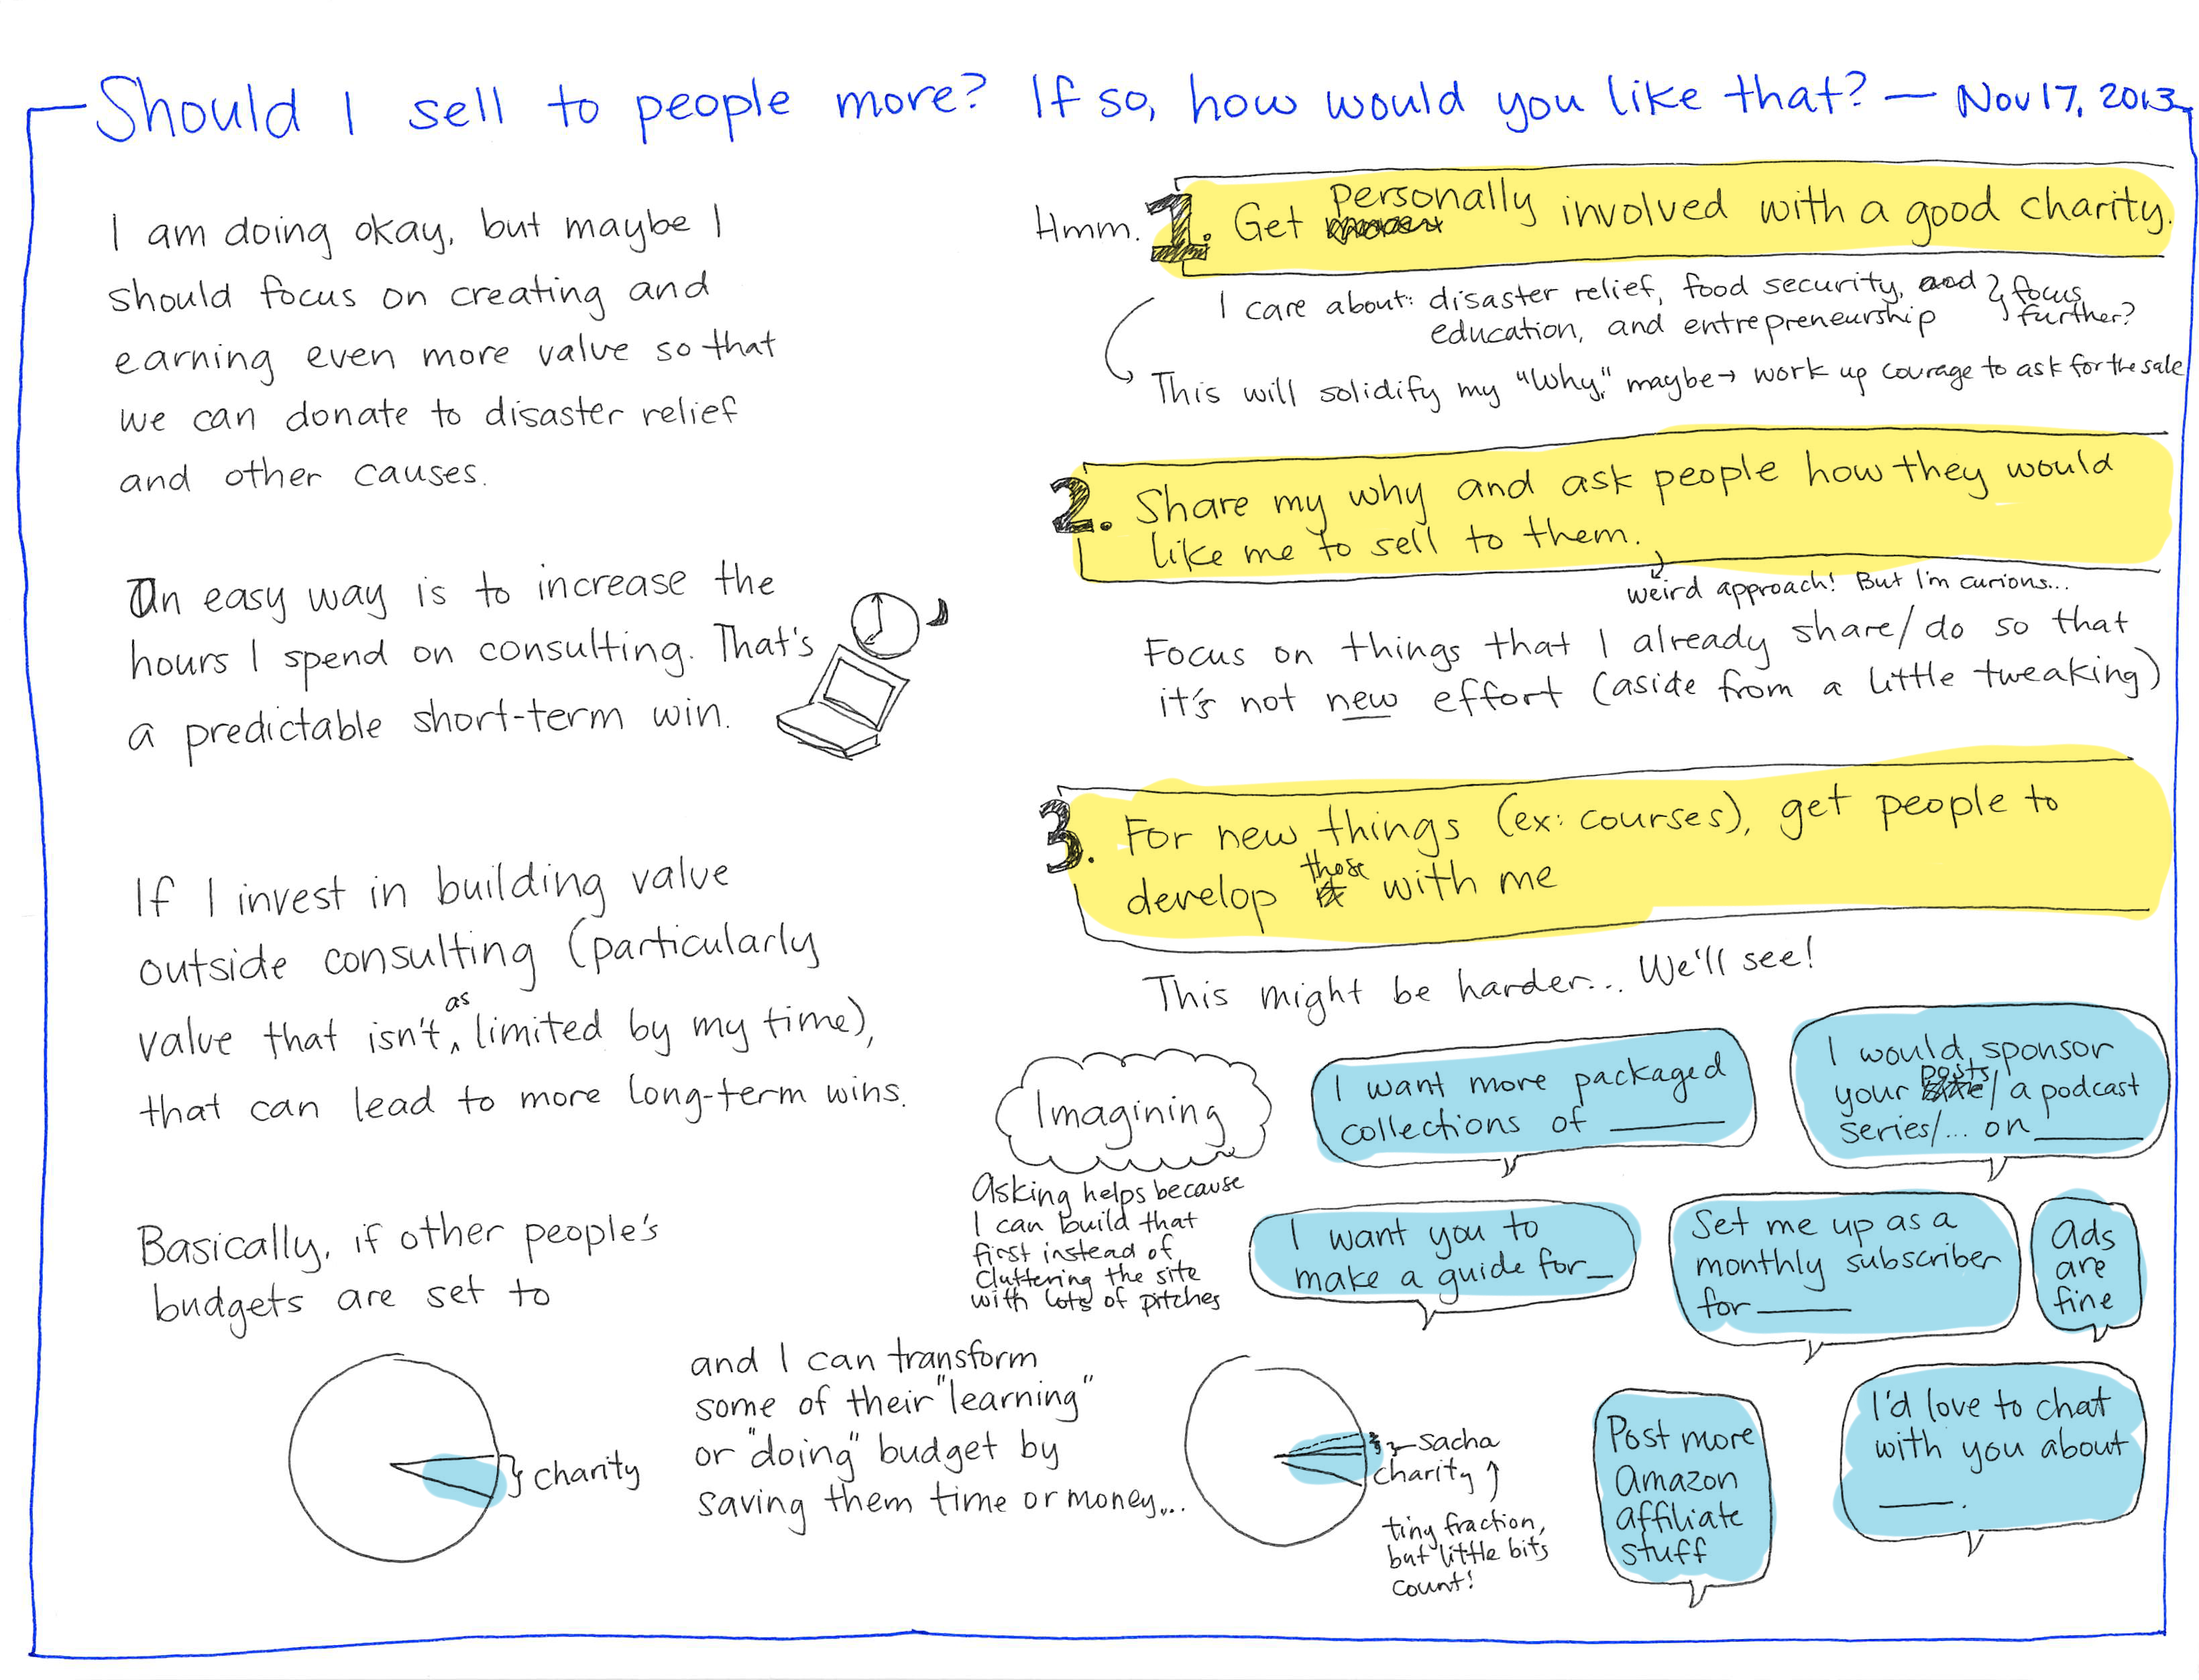 Should I sell to people more? If so, how would you like that? — Nov 17, 2013
I am doing okay, but maybe I
should focus on creating and
earning even more value so that
we can donate to disaster relief
and other causes.
An easy way is to increase the
hours I spend on consulting. That's
a predictable short-term win.
If I invest in building value
outside consulting (particularly
value that isn't as limited by my time),
that can lead to more long-term wins.
Basically, if other people's
budgets are set to
charity
and I can transform
some of their "learning"
or "doing" budget by
saving them time or money...
Sacha
charity ↑
tiny fraction,
but little bits
count!
Hmm.
1. Get personally involved with a good charity.
I care about: disaster relief, food security, and
education, and entrepreneurship
focus
further?
This will solidify my "Why," maybe → work up courage to ask for the sale
2. Share my why and ask people how they would
like me to sell to them.
weird approach! But I'm curious...
Focus on things that I already share/do so that
it's not new effort (aside from a little tweaking)
3. For new things (ex: courses), get people to
develop those with me
This might be harder... We'll see!
Imagining
Asking helps because
I can build that
first instead of
cluttering the site
with lots of pitches
I want more packaged
collections of ______
I would sponsor
your posts/a podcast
series/... on ______
I want you to
make a guide for _
Set me up as a
monthly subscriber
for ______
Ads
are
fine
Post more
Amazon
affiliate
stuff
I'd love to chat
with you about
____.